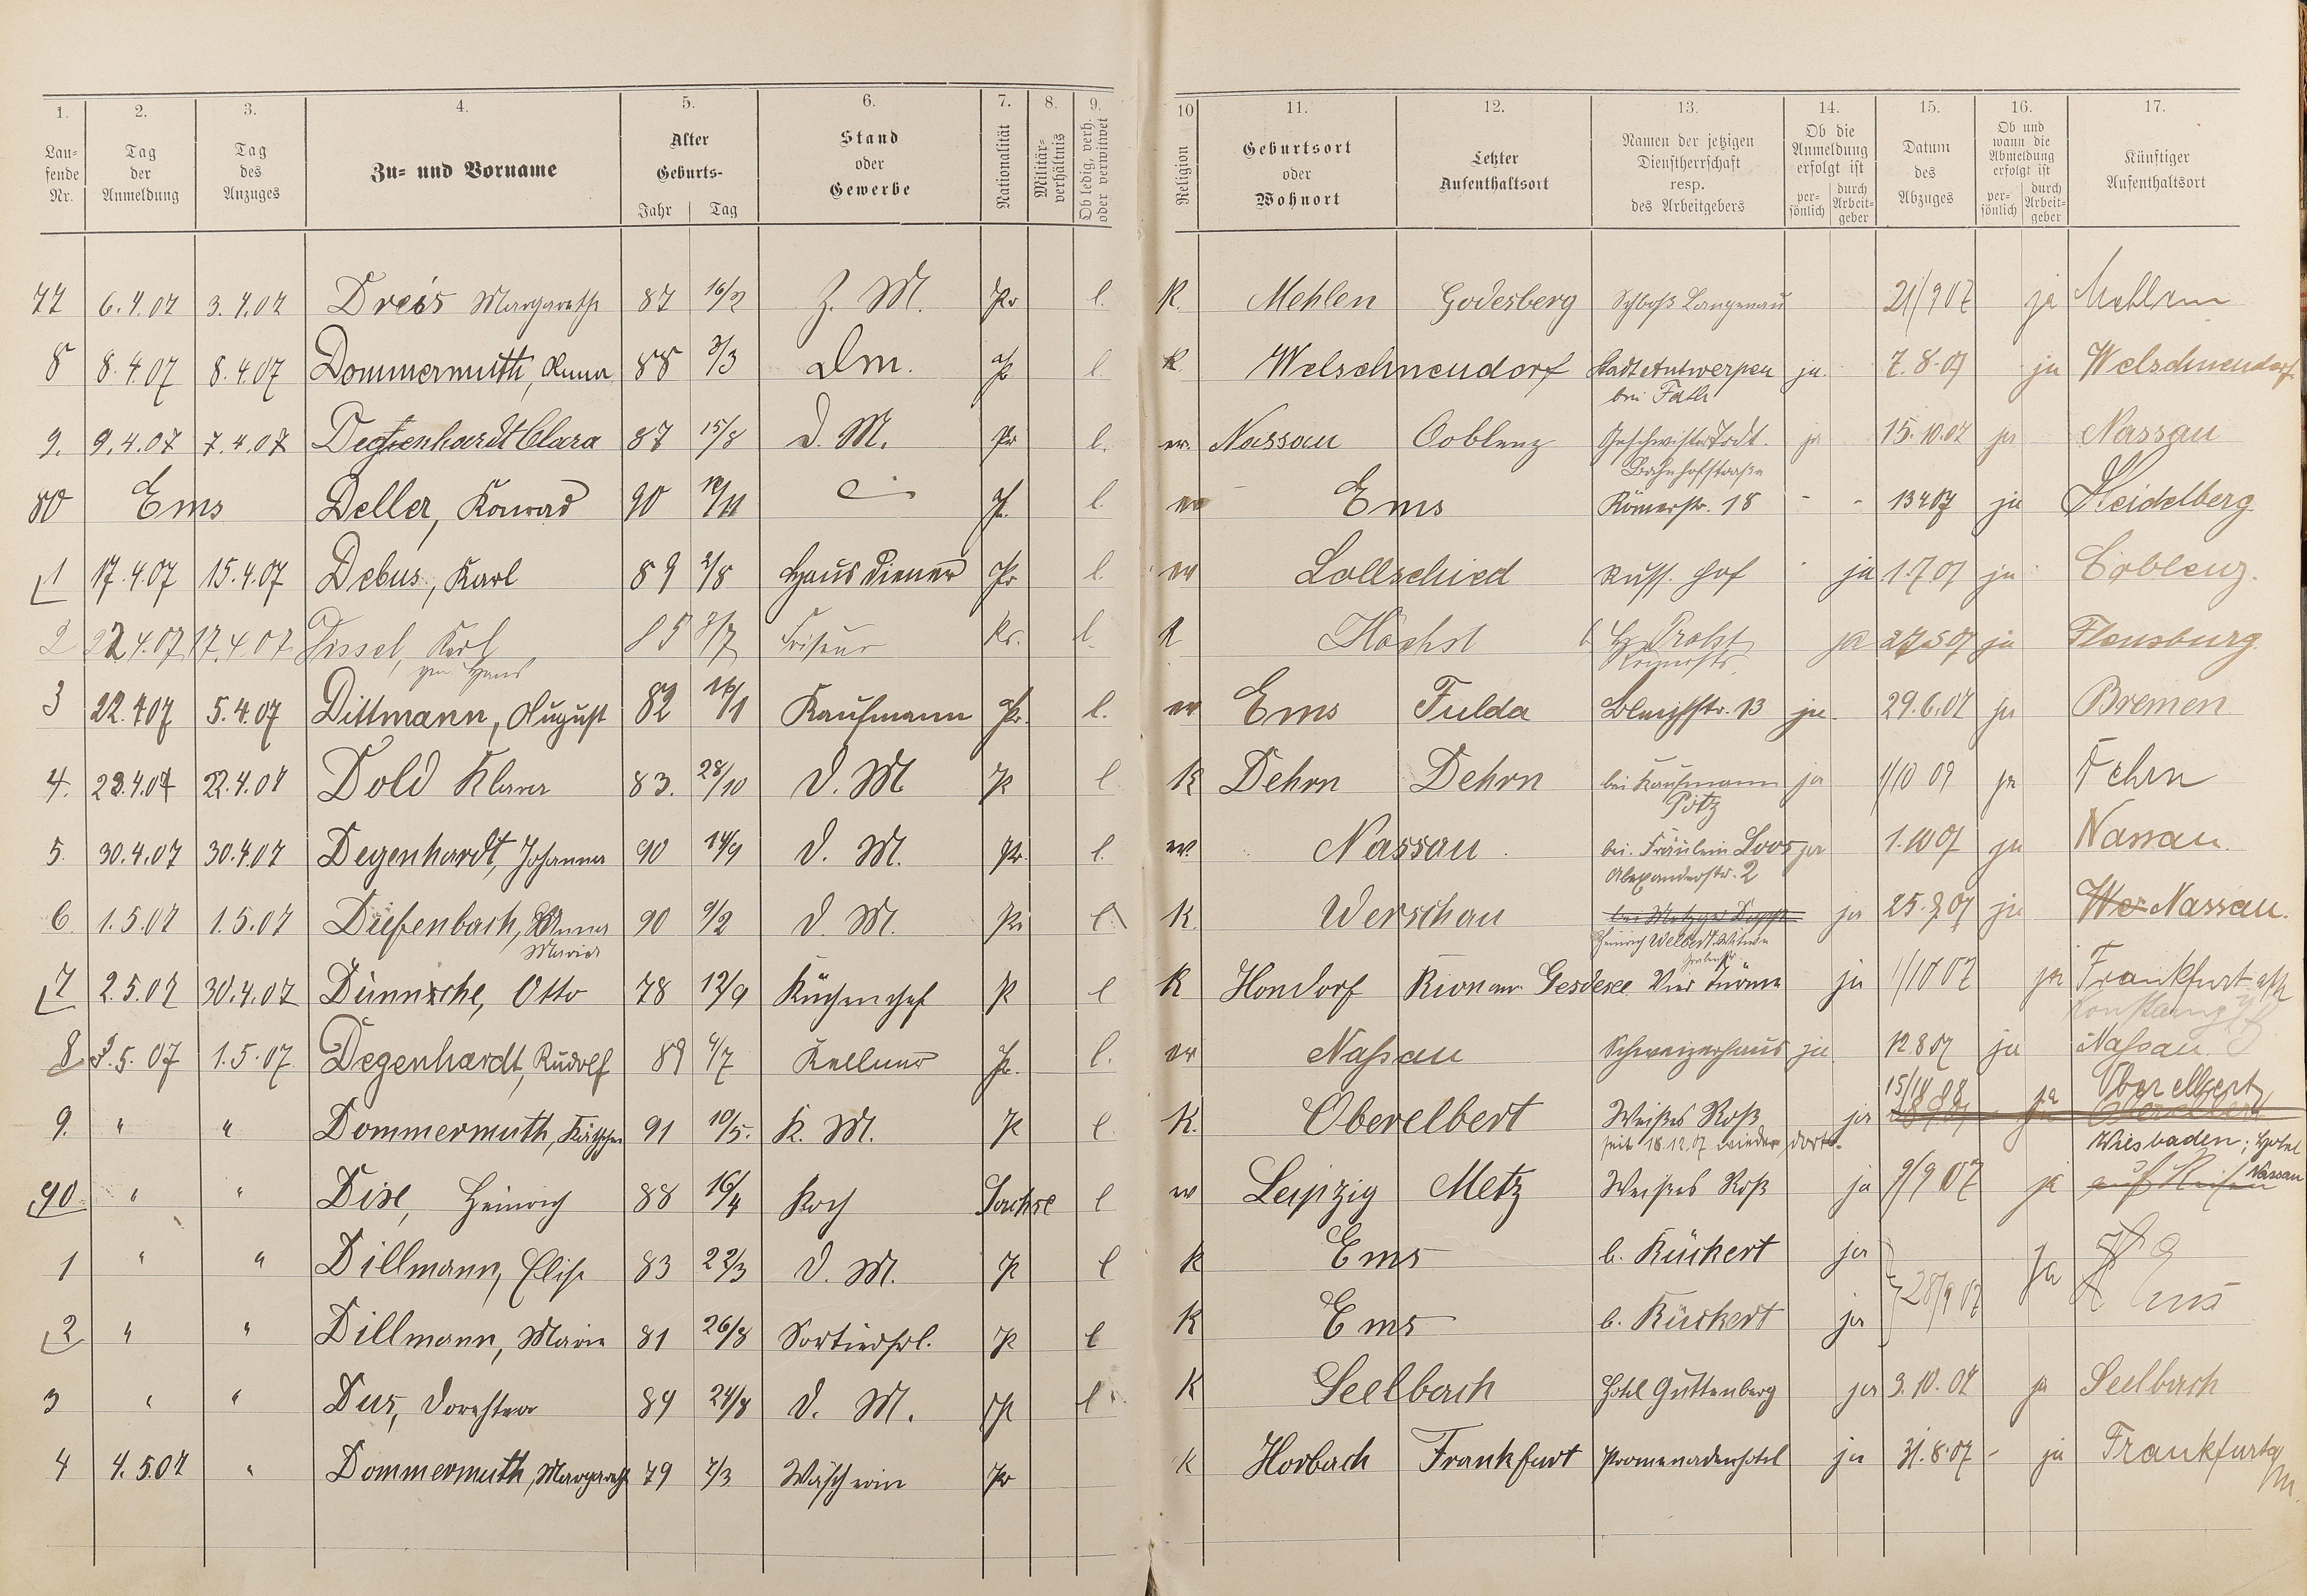 1. 2. 3. 4. 5. 6. 7. 8. 9. 10 11. 12. 13. 14. 15. 16. 17.
Laufende Nr.
Tag der Anmeldung
Tag des Anzuges
Zu- und Vorname
Alter Geburts-
Jahr Tag
Stand oder Gewerbe
Nationalität
Militär-verhältnis
Ob ledig, verh. oder verwitwet
Religion
Geburtsort oder Wohnort
Letzter Aufenthaltsort
Namen der jetzigen Dienstherrschaft resp. des Arbeitgebers
Ob die Anmeldung erfolgt ist
per-sönlich durch Arbeit-geber
Datum des Abzuges
Ob und wann die Abmeldung erfolgt ist
per-sönlich durch Arbeit-geber
Künftiger Aufenthaltsort
77 6.4.07 3.4.07 Dreis Margarethe 87 16/2 Z. M. Pr l. K. Mehlen Godesberg Schloß Langenau 21/9 07 ja Mehlem
8 8.4.07 8.4.07 Dommermuth, Anna 88 3/3 Dm. Pr l. K. Welschneudorf Stadt Antwerpen ja. 7.8.07 ja Welschneudorf
bei Fath
9. 9.4.07 7.4.07 Degenhardt Clara 87 15/8 D. M. Pr l. ev. Nassau Coblenz Geschwister Jodt. ja 15.10.07 ja Nassau
Bahnhofstraße
80 Ems Deller, Konrad 90 /11 Pr. l. ev Ems Römerstr. 18 - - 13.4.07 ja Heidelberg
1 17.4.07 15.4.07 Debus, Karl 89 2/8 Hausdiener Pr l. ev Lollschied Russ. Hof ja 1.7.07 ja Coblenz.
2 22.4.07 17.4.07 Dissel, Karl 85 3/7 Friseur Pr. l. K Höchst b H. Probst ja 27.5.07 ja Flensburg.
gen. Hans Römerstr.
3 22.4.07 5.4.07 Dittmann, August 82 16/1 Kaufmann Pr. l. ev Ems Fulda Bleichstr. 13 ja. 29.6.07 ja Bremen
4. 23.4.07 22.4.07 Dold Klara 83. 28/10 D. M P l K Dehrn Dehrn bei Kaufmann ja 1/10 07 ja Dehrn
Pötz
5. 30.4.07 30.4.07 Degenhardt, Johanna 90 14/9 D. M. Pr. l. ev. Nassau bei Fräulein Loos ja 1.10.07 ja Nassau.
Alexanderstr. 2
6 1.5.07 1.5.07 Diefenbach, Anna 90 9/2 D. M. Pr l. K. Werschau bei Metzger ja 25.9.07 ja Wer Nassau.
Maria Heinrich Welbert Witwe
7 2.5.07 30.4.07 Dünnsche, Otto 78 12/9 Küchenchef P l K Hondorf Rion am Gesdesee Vier Türme ja 1/10 07 ja Frankfurt a/M
Konstanz
8 3.5.07 1.5.07 Degenhardt, Rudolf 89 4/7 Kellner Pr. l. ev Nassau Schweizerhaus ja 12.8.07 ja Nassau
15/10 08 ja Oberelbert
9. " " Dommermuth, Käthchen 91 10/5. K. M. P l K. Oberelbert Weißes Roß ja Oberelbert
seit 18.12.07 wieder dort. Wiesbaden; Hotel
90 " " Dise, Heinrich 88 16/4 Koch Sachse l ev Leipzig Metz Weißes Roß ja 9/9 07 ja auf Reisen Nassau
1 " " Dillmann, Elise 83 22/3 D. M. P l K Ems b. Rückert ja
28/9 07 ja
2 " " Dillmann, Marie 81 26/8 Sortierfrl. P l K Ems b. Rückert ja Ems
3 " " Dus, Dorothea 89 24/8 D. M. P l K Seelbach Hotel Guttenberg ja 3.10.07 ja Seelbach
4 4.5.07 " Dommermuth, Margareth 79 7/3 Wäscherin Pr K Horbach Frankfurt Promenadenhotel ja 31.8.07 - ja Frankfurt a/M.